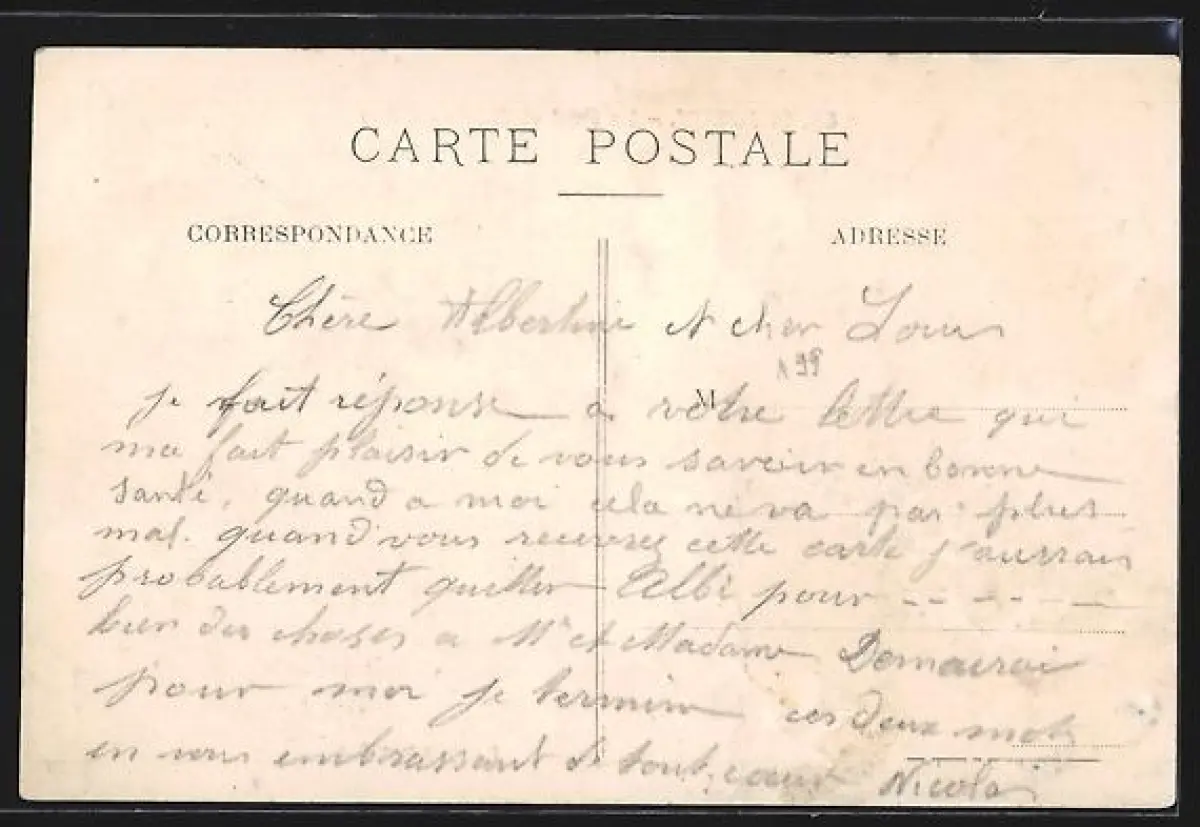 CARTE POSTALE
CORRESPONDANCE
ADRESSE
Chère Albertine et cher Louis
99
M
je fait réponse a votre lettre qui
ma fait plaisir de vous savoir en bonne
santé, quand a moi cela ne va pas plus
mal. quand vous recevrez cette carte j'aurrais
probablement quitter Albi pour -- - - -
bien des choses a Mr et Madame
pour moi je termine ces deux mots
en vous embrassant de tout coeur Nicolas